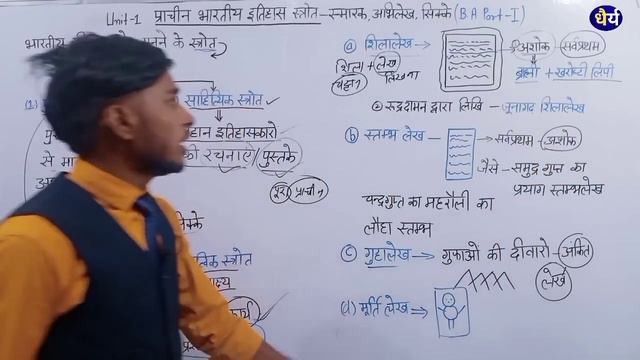 Unit-1 प्राचीन भारतीय इतिहास स्त्रोत - स्मारक, अभिलेख, सिक्के (B A Part-I)
धैर्य
के स्त्रोत
साहित्यिक स्त्रोत
इतिहासकारो
की रचनाऐं / पुस्तके
प्राचीन
स्त्रोत
(a) शिलालेख → अशोक - सर्वप्रथम
शिला + लेख
लिखना
ब्राह्मी + खरोष्टी लिपी
रूद्रदामन द्वारा लिखि - जूनागढ शिलालेख
(b) स्तम्भ लेख → सर्वप्रथम - अशोक
जैसे - समुद्र गुप्त का
प्रयाग स्तम्भलेख
चन्द्रगुप्त का महरौली का
लौहा स्तम्भ
(c) गुहालेख → गुफाओ की दीवारो - अंकित
लेख
(d) मूर्ति लेख →